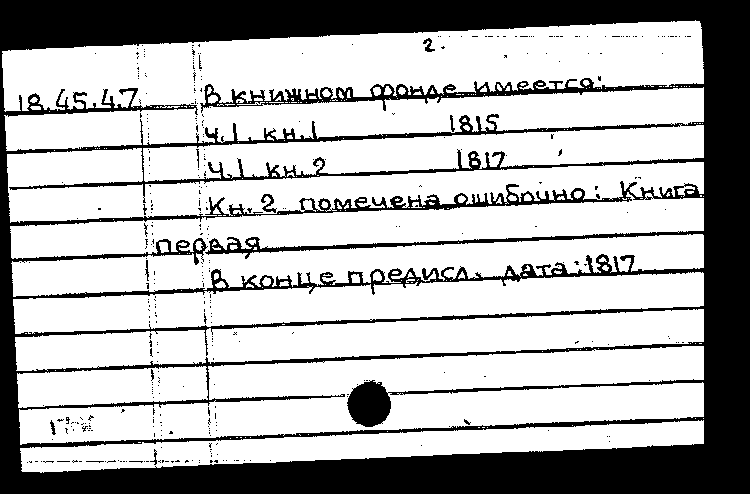 2.
18.45.4.7 В книжном фонде имеется:
ч.1. кн.1 1815
ч.1. кн.2 1817
Кн.2 помечена ошибочно: Книга
первая
В конце предисл. дата:1817.